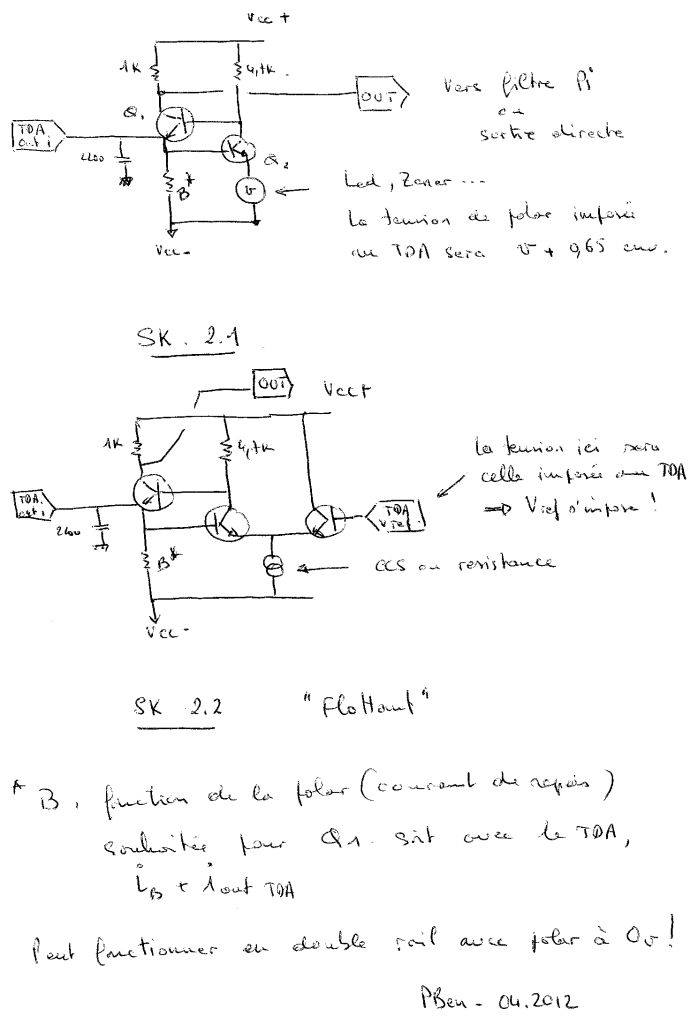 Vcc +
1K
4,7K.
OUT
Vers filtre Pi
ou
sortie directe
Q1
TDA
Out i
2200
Q2
B*
v
Led, Zener ...
La tension de polar imposée
au TDA sera v + 0,65 env.
Vcc-
SK. 2.1
OUT
Vcc+
1K
4,7K
La tension ici sera
celle imposée au TDA
⇒ Vref s'impose !
TDA.
out i
2200
TDA
V ref.
B*
CCS ou resistance
Vcc-
SK 2.2 "Flottant"
* B, fonction de la polar (courant de repos)
souhaitée pour Q1. Soit avec le TDA,
iB + i out TDA
Peut fonctionner en double rail avec polar à 0v !
PBen - 04.2012